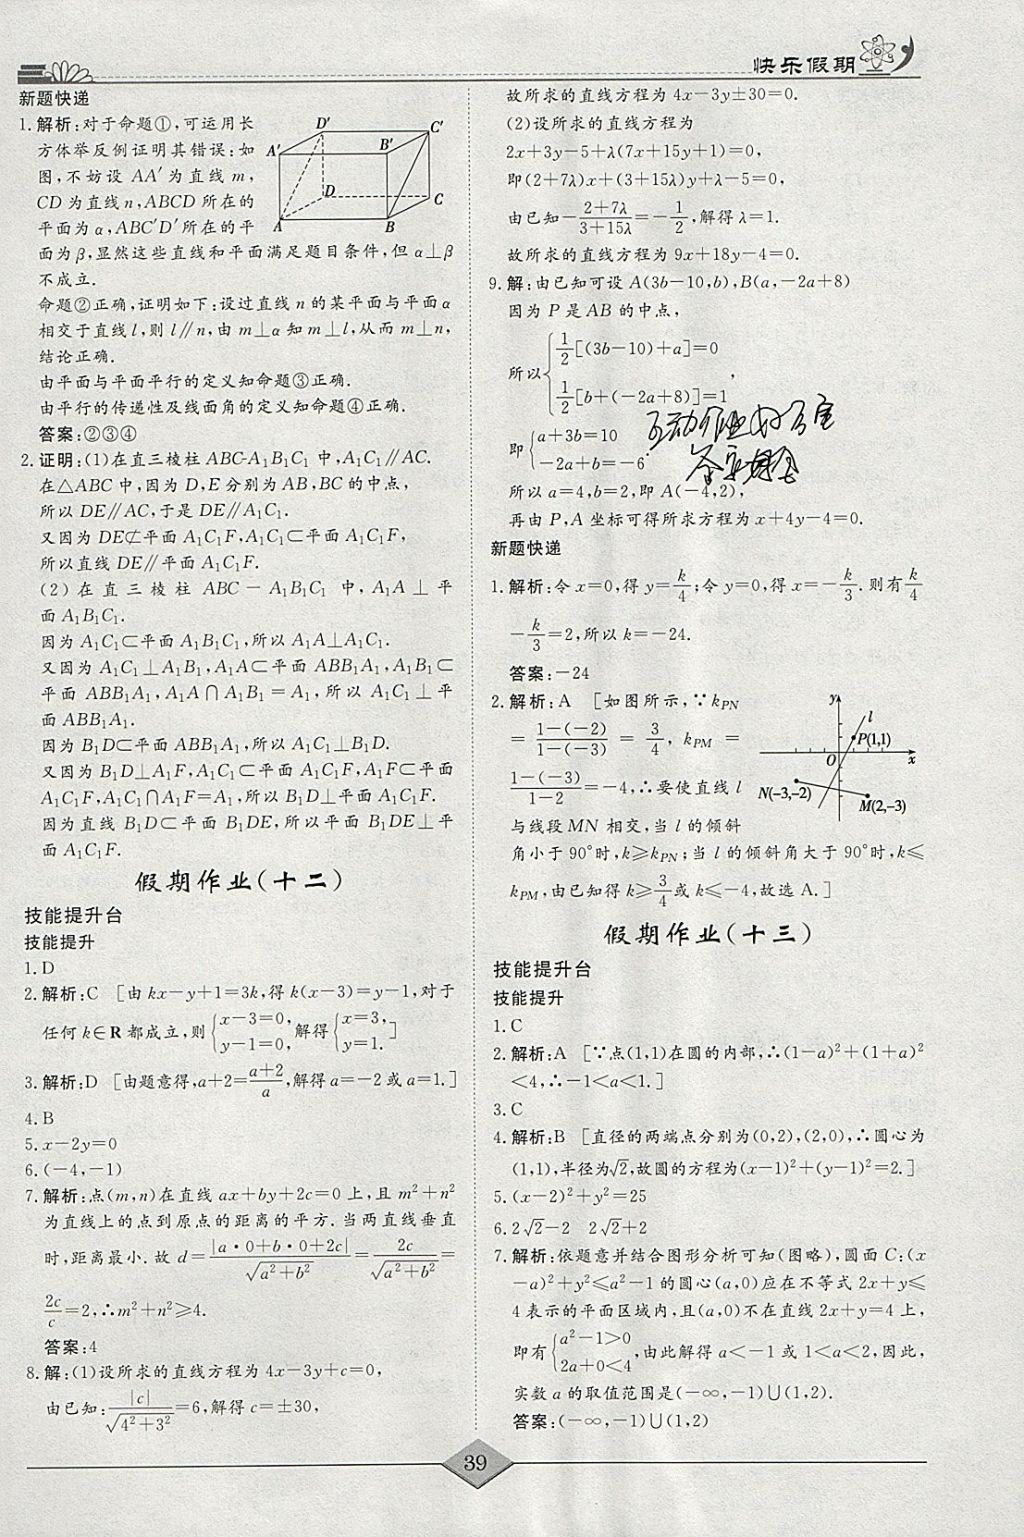 快乐假期
新题快递
1.解析:对于命题①,可运用长
方体举反例证明其错误:如
图,不妨设 AA′为直线 m,
CD 为直线 n,ABCD 所在的
平面为 α,ABC′D′所在的平
面为 β,显然这些直线和平面满足题目条件,但 α⊥β
不成立.
D′
C′
A′
B′
D
C
A
B
命题②正确,证明如下:设过直线 n 的某平面与平面 α
相交于直线 l,则 l∥n,由 m⊥α 知 m⊥l,从而 m⊥n,
结论正确.
由平面与平面平行的定义知命题③正确.
由平行的传递性及线面角的定义知命题④正确.
答案:②③④
2.证明:(1)在直三棱柱 ABC-A₁B₁C₁ 中,A₁C₁∥AC.
在△ABC 中,因为 D,E 分别为 AB,BC 的中点,
所以 DE∥AC,于是 DE∥A₁C₁.
又因为 DE⊄平面 A₁C₁F,A₁C₁⊂平面 A₁C₁F,
所以直线 DE∥平面 A₁C₁F.
(2)在直三棱柱 ABC-A₁B₁C₁ 中,A₁A⊥平
面 A₁B₁C₁.
因为 A₁C₁⊂平面 A₁B₁C₁,所以 A₁A⊥A₁C₁.
又因为 A₁C₁⊥A₁B₁,A₁A⊂平面 ABB₁A₁,A₁B₁⊂
平面 ABB₁A₁,A₁A∩A₁B₁=A₁,所以 A₁C₁⊥平
面 ABB₁A₁.
因为 B₁D⊂平面 ABB₁A₁,所以 A₁C₁⊥B₁D.
又因为 B₁D⊥A₁F,A₁C₁⊂平面 A₁C₁F,A₁F⊂平面
A₁C₁F,A₁C₁∩A₁F=A₁,所以 B₁D⊥平面 A₁C₁F.
因为直线 B₁D⊂平面 B₁DE,所以平面 B₁DE⊥平
面 A₁C₁F.
假期作业(十二)
技能提升台
技能提升
1.D
2.解析:C [由 kx-y+1=3k,得 k(x-3)=y-1,对于
任何 k∈R 都成立,则{x-3=0, y-1=0,解得{x=3, y=1.]
3.解析:D [由题意得,a+2=(a+2)/a,解得 a=-2 或 a=1.]
4.B
5.x-2y=0
6.(-4,-1)
7.解析:点(m,n)在直线 ax+by+2c=0 上,且 m²+n²
为直线上的点到原点的距离的平方.当两直线垂直
时,距离最小.故 d=|a·0+b·0+2c|/√(a²+b²)=2c/√(a²+b²)=
2c/c=2,∴m²+n²≥4.
答案:4
8.解:(1)设所求的直线方程为 4x-3y+c=0,
由已知:|c|/√(4²+3²)=6,解得 c=±30,
故所求的直线方程为 4x-3y±30=0.
(2)设所求的直线方程为
2x+3y-5+λ(7x+15y+1)=0,
即(2+7λ)x+(3+15λ)y+λ-5=0,
由已知-(2+7λ)/(3+15λ)=-1/2,解得 λ=1.
故所求的直线方程为 9x+18y-4=0.
9.解:由已知可设 A(3b-10,b),B(a,-2a+8)
因为 P 是 AB 的中点,
所以{1/2[(3b-10)+a]=0
1/2[b+(-2a+8)]=1,
即{a+3b=10
-2a+b=-6.
所以 a=4,b=2,即 A(-4,2),
再由 P,A 坐标可得所求方程为 x+4y-4=0.
新题快递
1.解析:令 x=0,得 y=k/4;令 y=0,得 x=-k/3.则有k/4
-k/3=2,所以 k=-24.
答案:-24
2.解析:A [如图所示,∵kPN
=(1-(-2))/(1-(-3))=3/4,kPM=
(1-(-3))/(1-2)=-4,∴要使直线 l
与线段 MN 相交,当 l 的倾斜
角小于 90°时,k≥kPN;当 l 的倾斜角大于 90°时,k≤
kPM,由已知得 k≥3/4或 k≤-4,故选 A.]
y
l
P(1,1)
O
x
N(-3,-2)
M(2,-3)
假期作业(十三)
技能提升台
技能提升
1.C
2.解析:A [∵点(1,1)在圆的内部,∴(1-a)²+(1+a)²
<4,∴-1<a<1.]
3.C
4.解析:B [直径的两端点分别为(0,2),(2,0),∴圆心为
(1,1),半径为√2,故圆的方程为(x-1)²+(y-1)²=2.]
5.(x-2)²+y²=25
6.2√2-2 2√2+2
7.解析:依题意并结合图形分析可知(图略),圆面 C:(x
-a)²+y²≤a²-1 的圆心(a,0)应在不等式 2x+y≤
4 表示的平面区域内,且(a,0)不在直线 2x+y=4 上,
即有{a²-1>0
2a+0<4,由此解得 a<-1 或 1<a<2,因此,
实数 a 的取值范围是(-∞,-1)∪(1,2).
答案:(-∞,-1)∪(1,2)
39